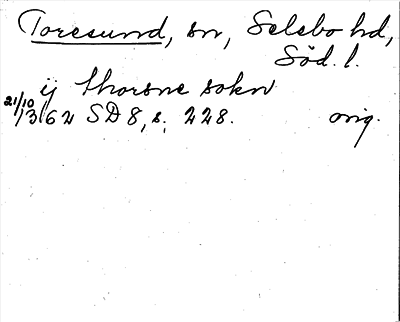 Toresund, sn, Selebo hd,
Söd. l.
ij thorsne sokn
21/10 1362 SD 8, s. 228. orig.